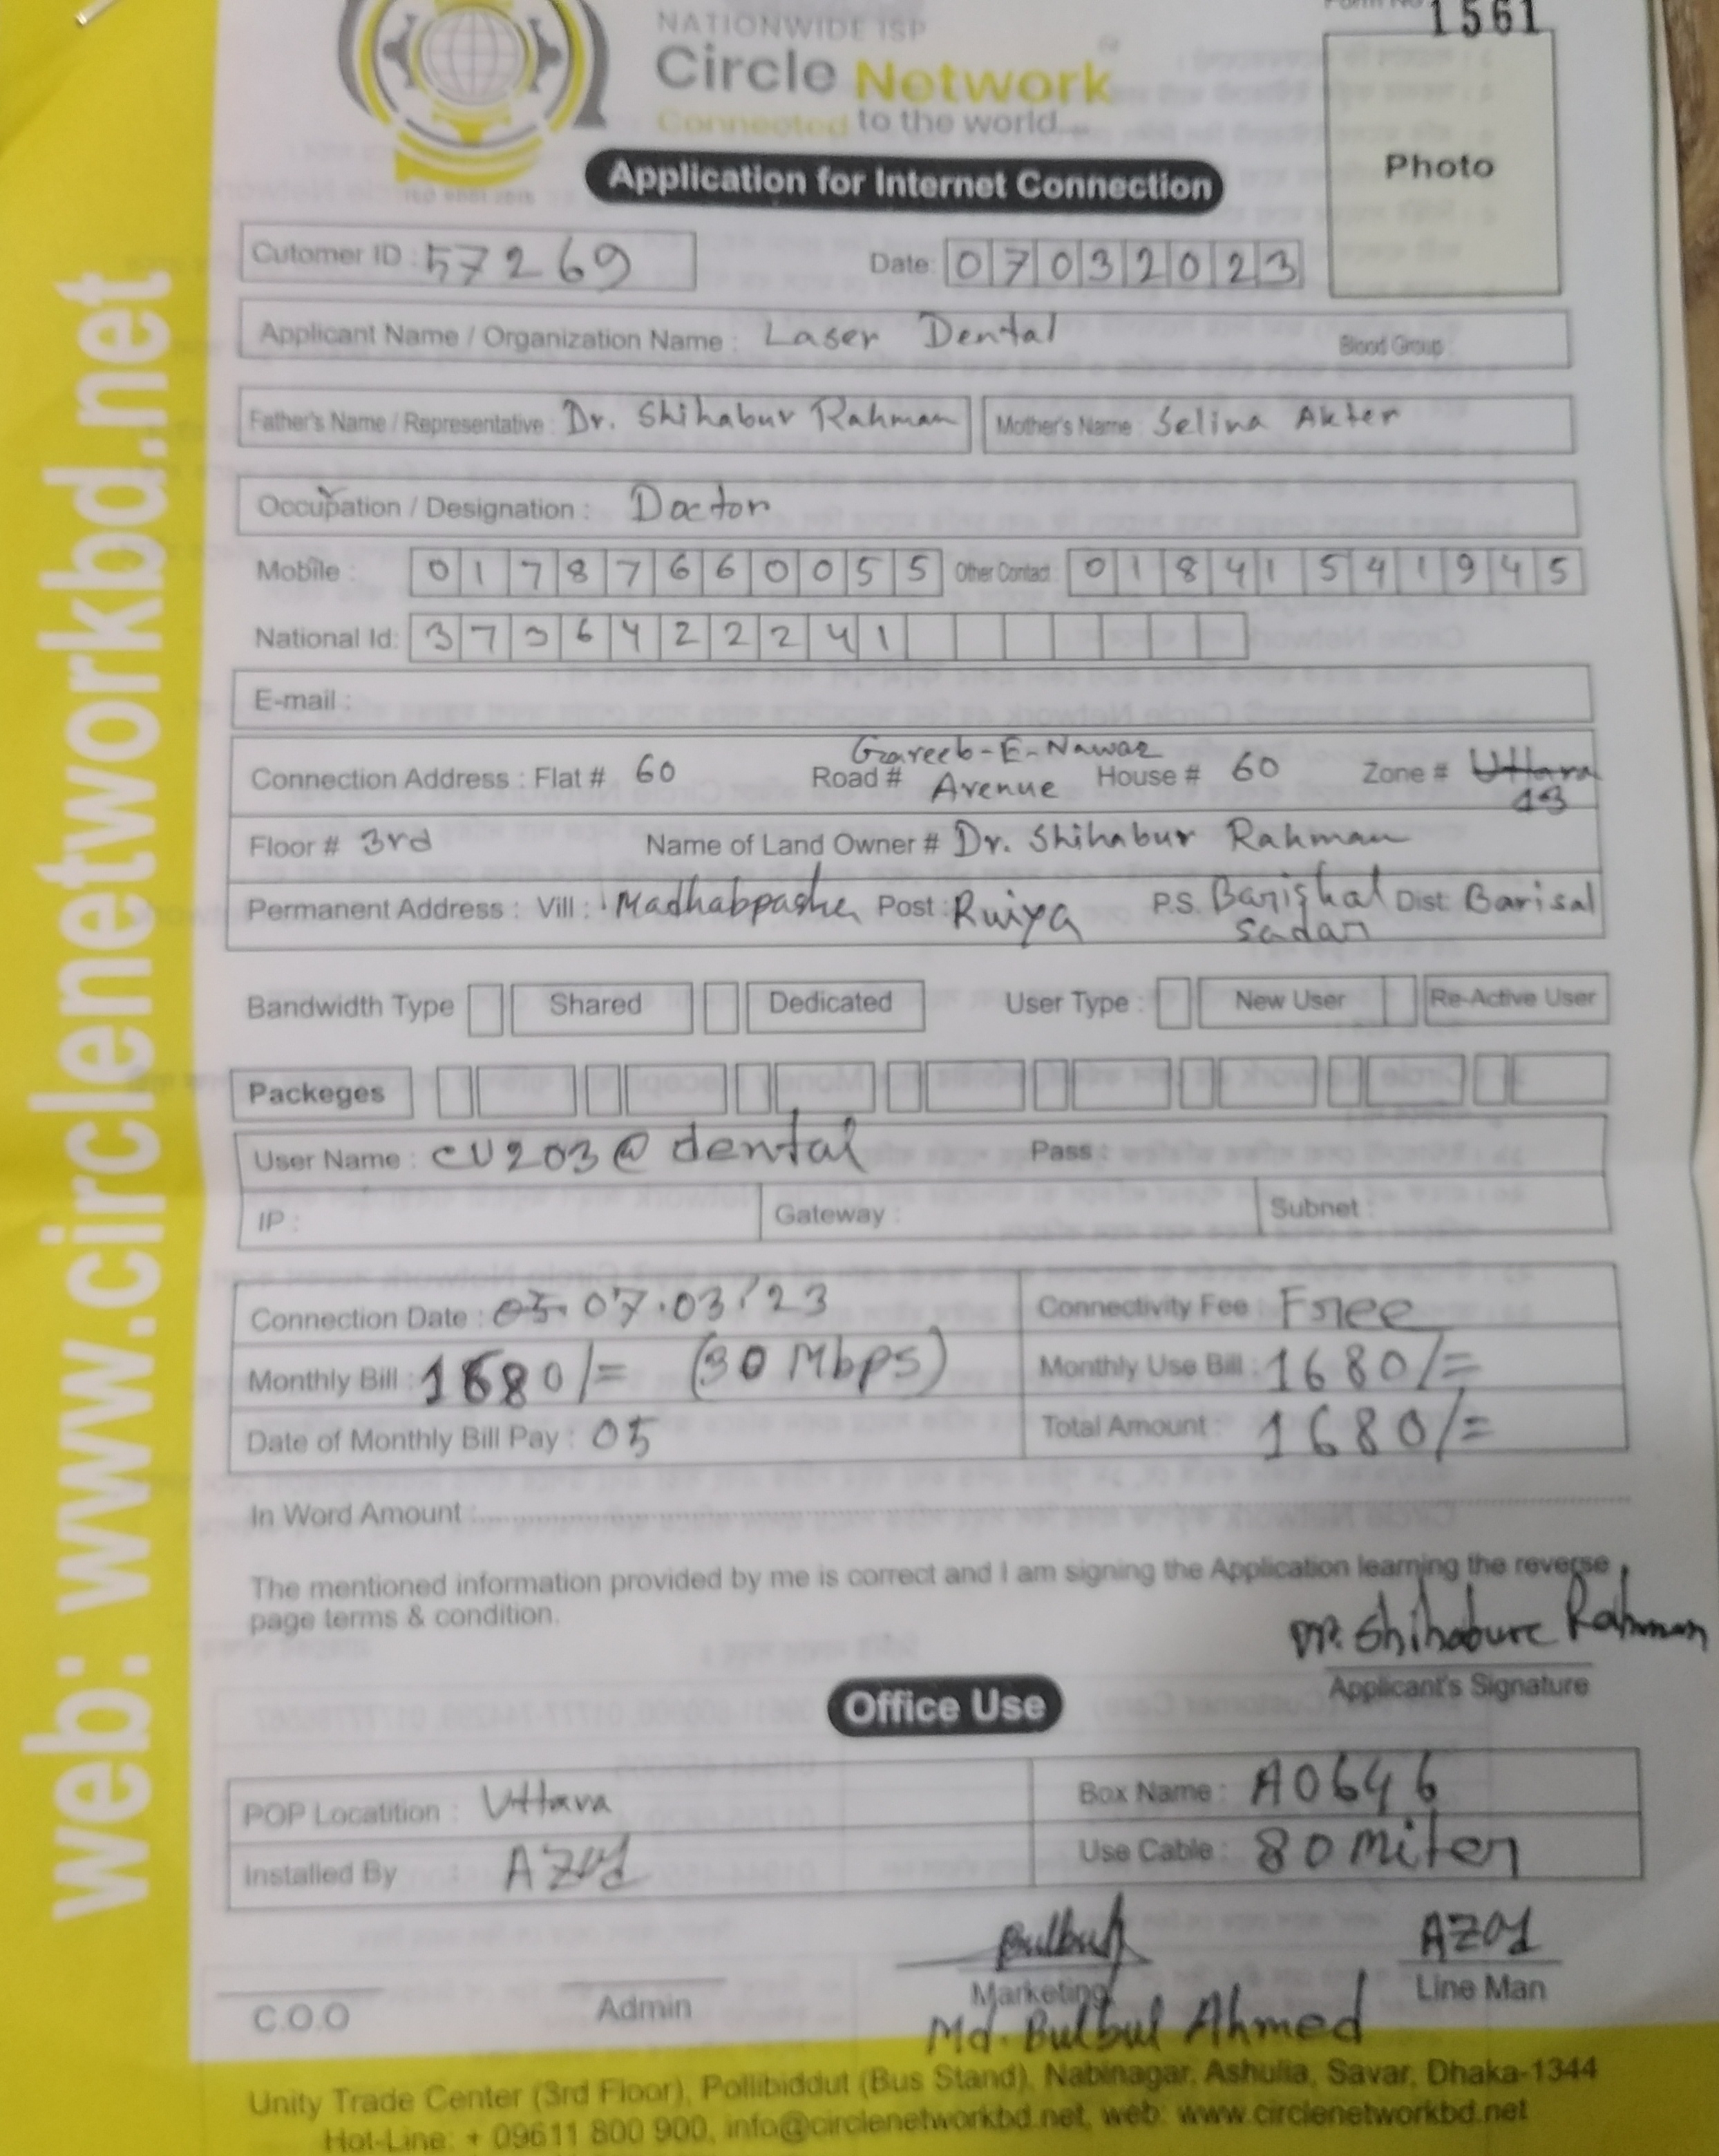 1561
NATIONWIDE ISP
Circle Network
Connected to the world
Photo
Application for Internet Connection
Cutomer ID : 57269 Date: 07032023
Applicant Name / Organization Name : Laser Dental Blood Group
Father's Name / Representative : Dr. Shihabur Rahman Mother's Name Selina Akter
Occupation / Designation : Doctor
Mobile : 01787660055 Other Contact 01841541945
National Id: 3736422241
E-mail :
Connection Address : Flat # 60 Road # Gareeb-E-Nawaz Avenue House # 60 Zone # Uttara 13
Floor # 3rd Name of Land Owner # Dr. Shihabur Rahman
Permanent Address : Vill : Madhabpasha Post : P.S. Barishal Sadar Dist Barisal
Bandwidth Type Shared Dedicated User Type : New User Re-Active User
Packeges
User Name : CU203@dental Pass :
IP : Gateway : Subnet :
Connection Date : 05. 07.03.'23 Connectivity Fee Free
Monthly Bill : 1680/= (30 Mbps) Monthly Use Bill : 1680/=
Date of Monthly Bill Pay : 05 Total Amount : 1680/=
In Word Amount :
The mentioned information provided by me is correct and I am signing the Application learning the reverse
page terms & condition.
Dr. Shihabure Rahman
Applicant's Signature
Office Use
POP Locatition : Uttara Box Name : A0646
Installed By Use Cable : 80 miter
Bulbul
C.O.O Admin Marketing Line Man
Md. Bulbul Ahmed
Unity Trade Center (3rd Floor), Pollibiddut (Bus Stand), Nabinagar, Ashulia, Savar, Dhaka-1344
Hot-Line: + 09611 800 900, info@circlenetworkbd.net, web: www.circlenetworkbd.net
web: www.circlenetworkbd.net